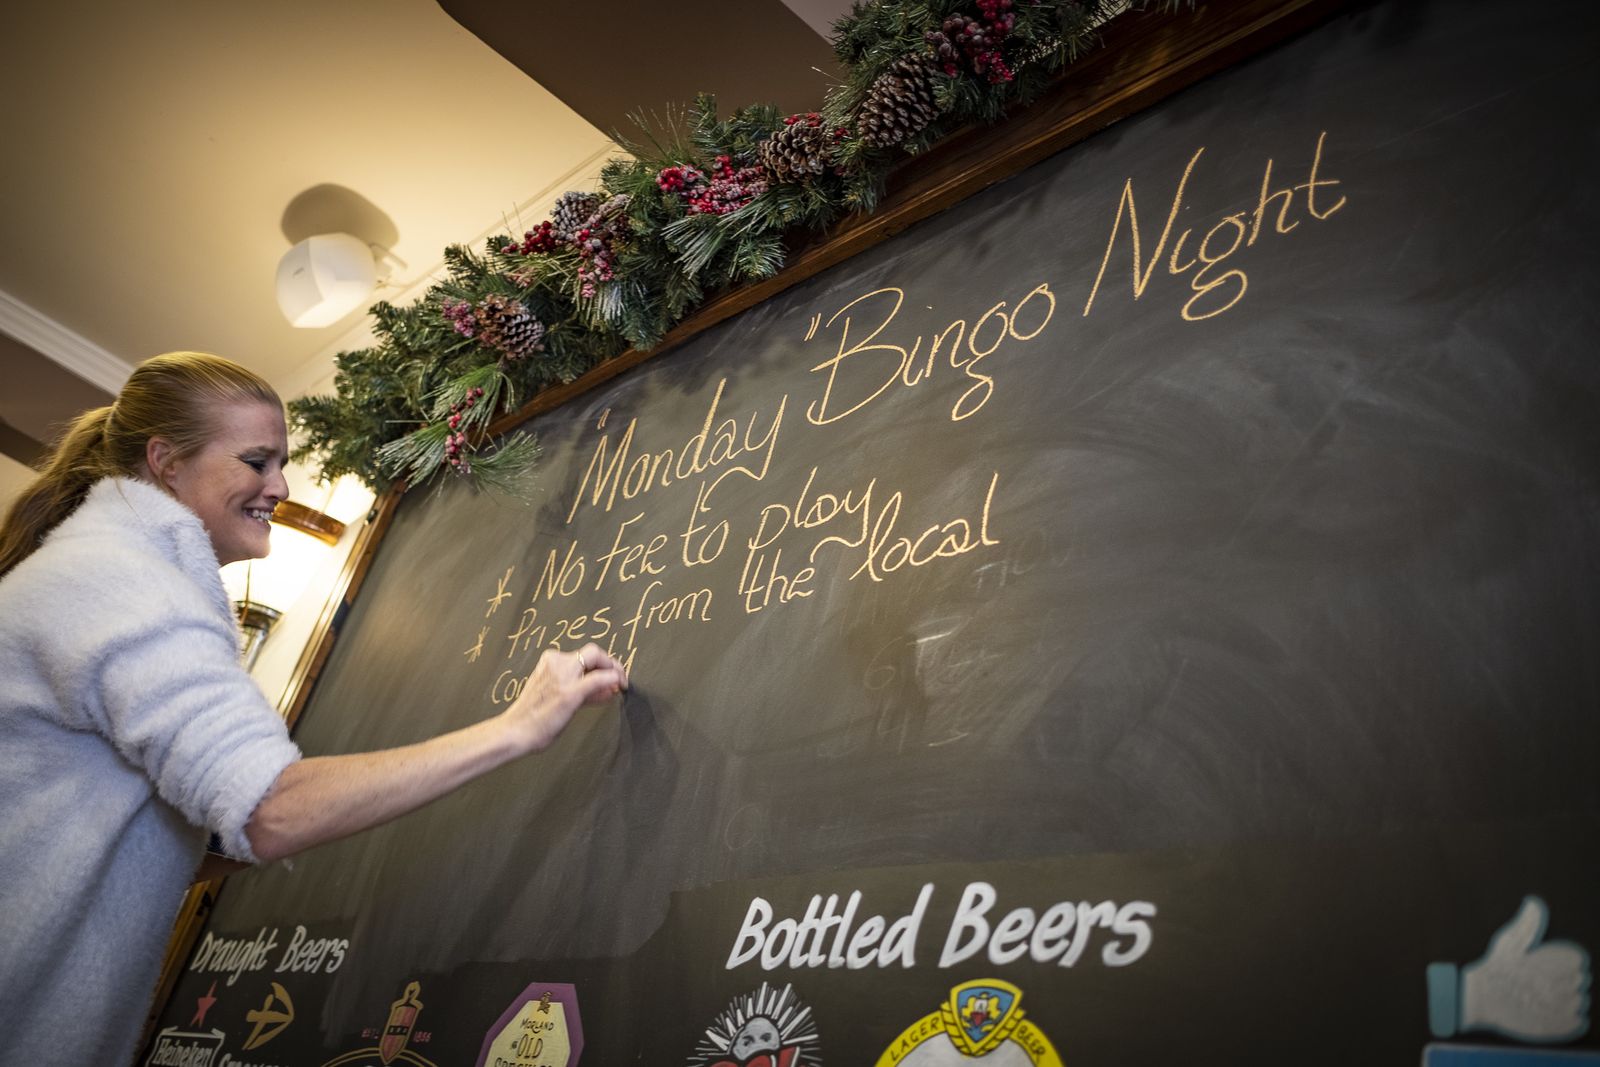 "Monday "Bingo Night
* No Fee to play
* Prizes from the local
Draught Beers
Bottled Beers
Heineken
ESTD 1856
MORLAND
OLD
LAGER BEER